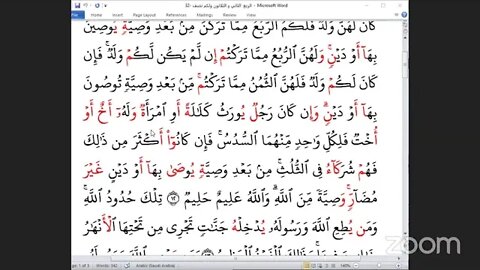 الربع الثاني و الثلاثون ولكم نصف -32 - Microsoft Word
File Home Insert Page Layout References Mailings Review View
كَانَ لَهُنَّ وَلَدٌ فَلَكُمُ ٱلرُّبُعُ مِمَّا تَرَكْنَ مِنۢ بَعْدِ وَصِيَّةٍ يُوصِينَ
بِهَآ أَوْ دَيْنٍ وَلَهُنَّ ٱلرُّبُعُ مِمَّا تَرَكْتُمْ إِن لَّمْ يَكُن لَّكُمْ وَلَدٌ فَإِن
كَانَ لَكُمْ وَلَدٌ فَلَهُنَّ ٱلثُّمُنُ مِمَّا تَرَكْتُم مِّنۢ بَعْدِ وَصِيَّةٍ تُوصُونَ
بِهَآ أَوْ دَيْنٍ وَإِن كَانَ رَجُلٌ يُورَثُ كَلَٰلَةً أَوِ ٱمْرَأَةٌ وَلَهُۥٓ أَخٌ أَوْ
أُخْتٌ فَلِكُلِّ وَٰحِدٍ مِّنْهُمَا ٱلسُّدُسُ فَإِن كَانُوٓا۟ أَكْثَرَ مِن ذَٰلِكَ
فَهُمْ شُرَكَآءُ فِى ٱلثُّلُثِ مِنۢ بَعْدِ وَصِيَّةٍ يُوصَىٰ بِهَآ أَوْ دَيْنٍ غَيْرَ
مُضَآرٍّ وَصِيَّةً مِّنَ ٱللَّهِ وَٱللَّهُ عَلِيمٌ حَلِيمٌ ١٢ تِلْكَ حُدُودُ ٱللَّهِ
وَمَن يُطِعِ ٱللَّهَ وَرَسُولَهُۥ يُدْخِلْهُ جَنَّٰتٍ تَجْرِى مِن تَحْتِهَا ٱلْأَنْهَٰرُ
Words: 342
Arabic (Saudi Arabia)
140%
zoom